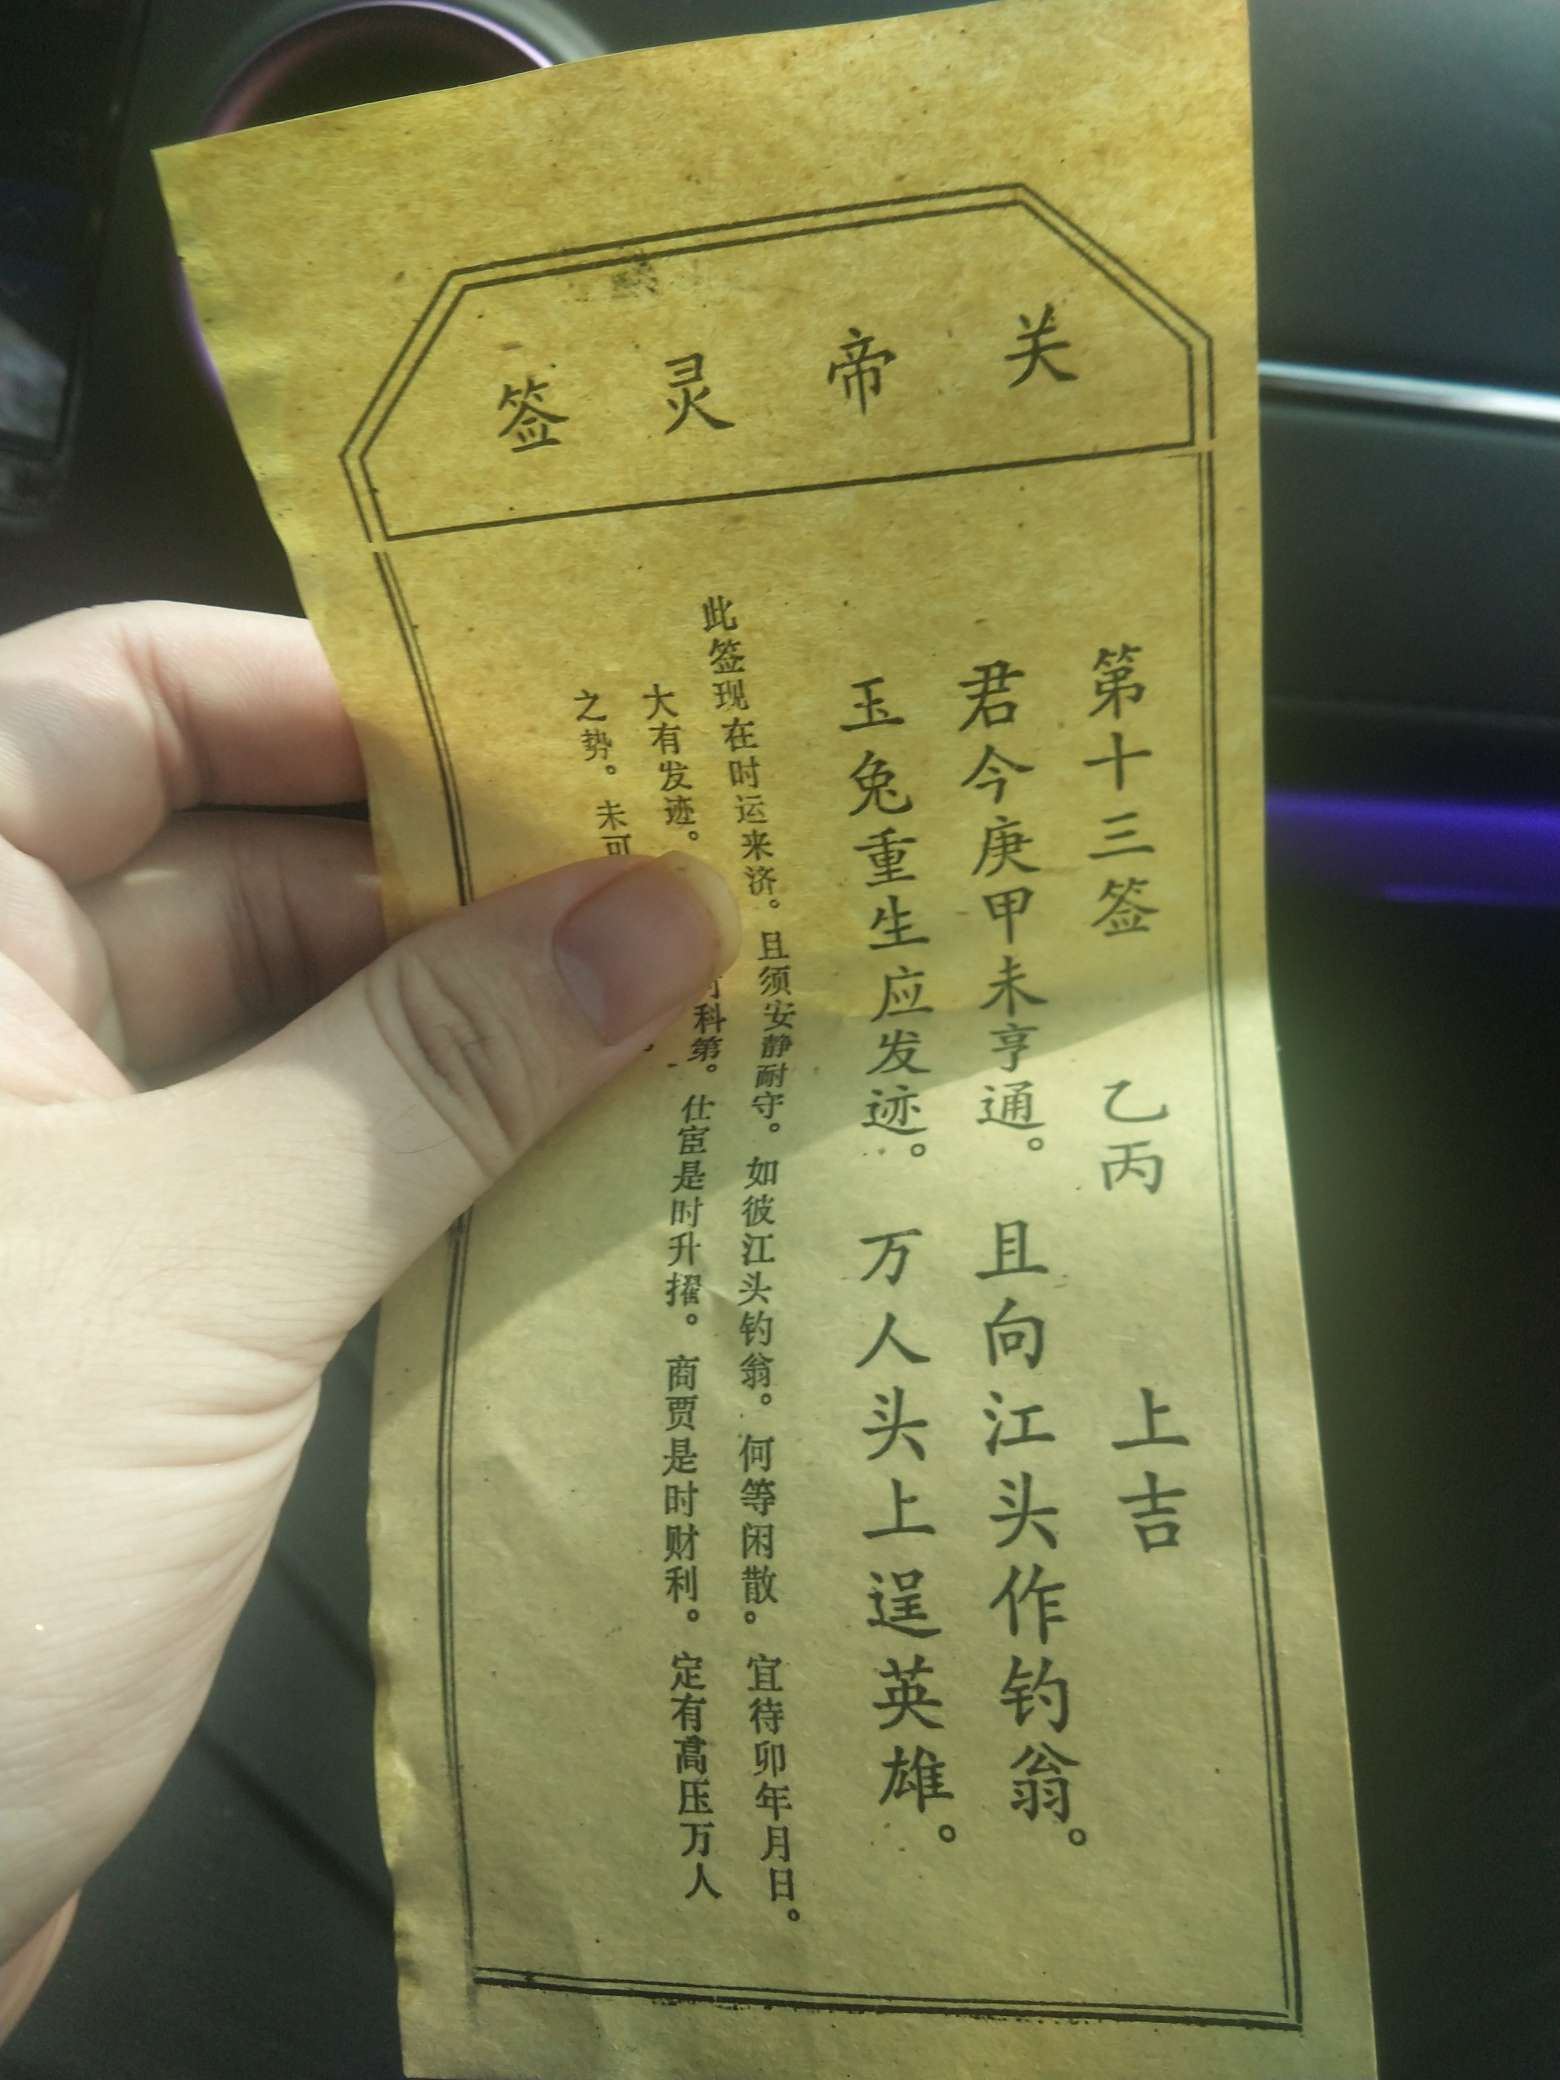 关帝灵签
第十三签 乙丙 上吉
君今庚甲未亨通。 且向江头作钓翁。
玉兔重生应发迹。 万人头上逞英雄。
此签现在时运来济。且须安静耐守。如彼江头钓翁。何等闲散。宜待卯年月日。
大有发迹。 科第。仕宦是时升擢。商贾是时财利。定有高压万人
之势。未可